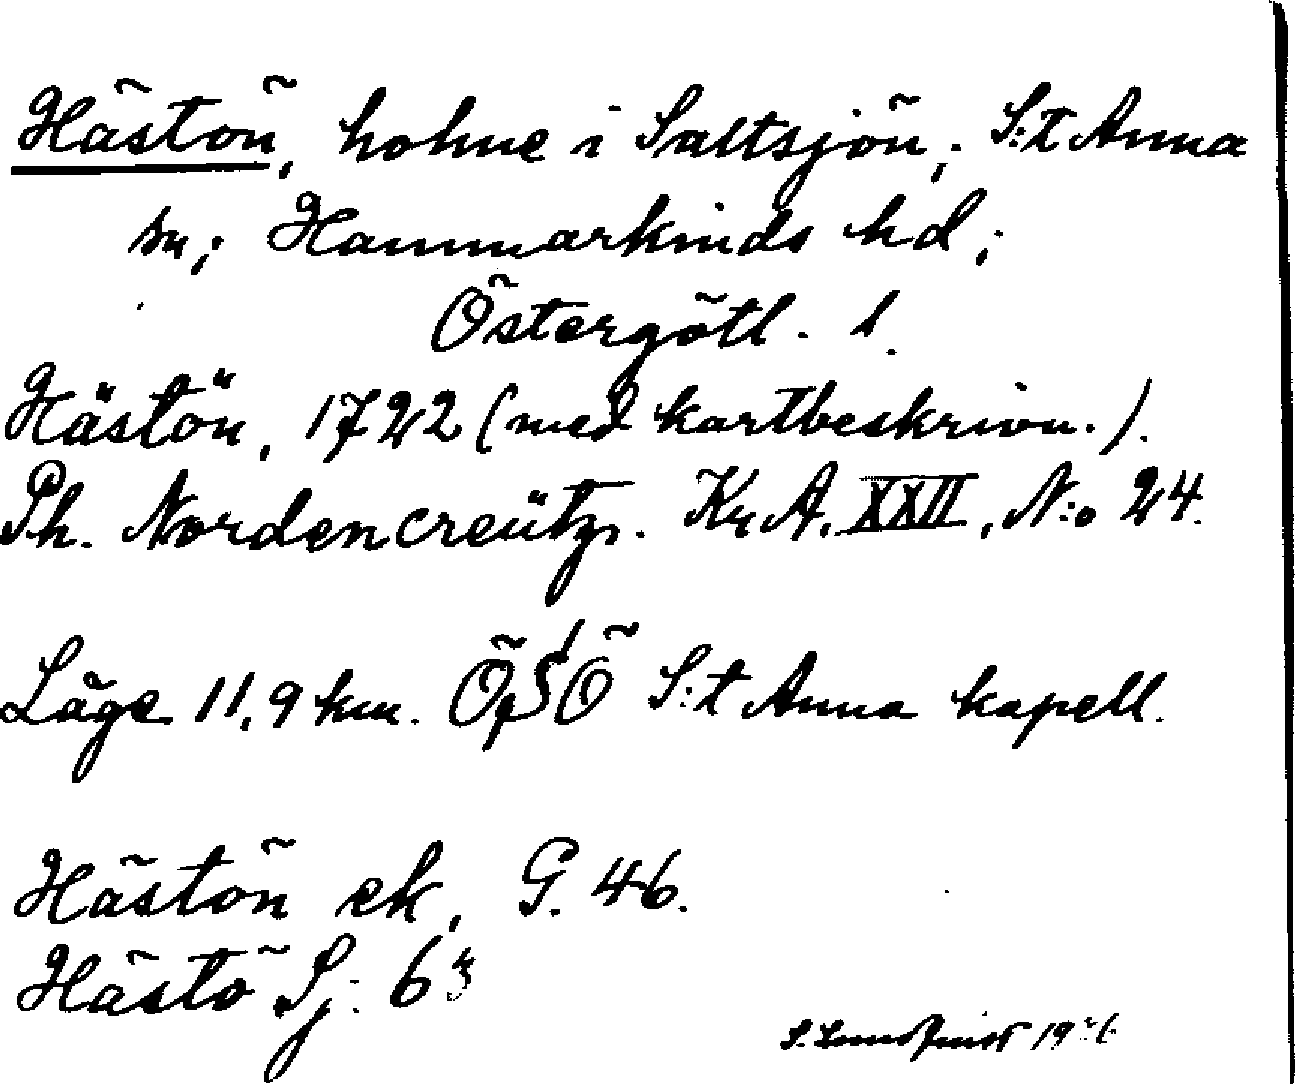 Hästön, holme i Saltsjön; S:t Anna
sn; Hammarkinds hd;
Östergötl. l.
Hästön, 1722 (med kartbeskrivn.).
Ph. Nordencreütz. Kr A. XXII, N:o 24.
Läge 11,9 km. ÖSÖ S:t Anna kapell.
Hästön ek, G. 46.
Hästö Sj. 63
S. Lundqvist